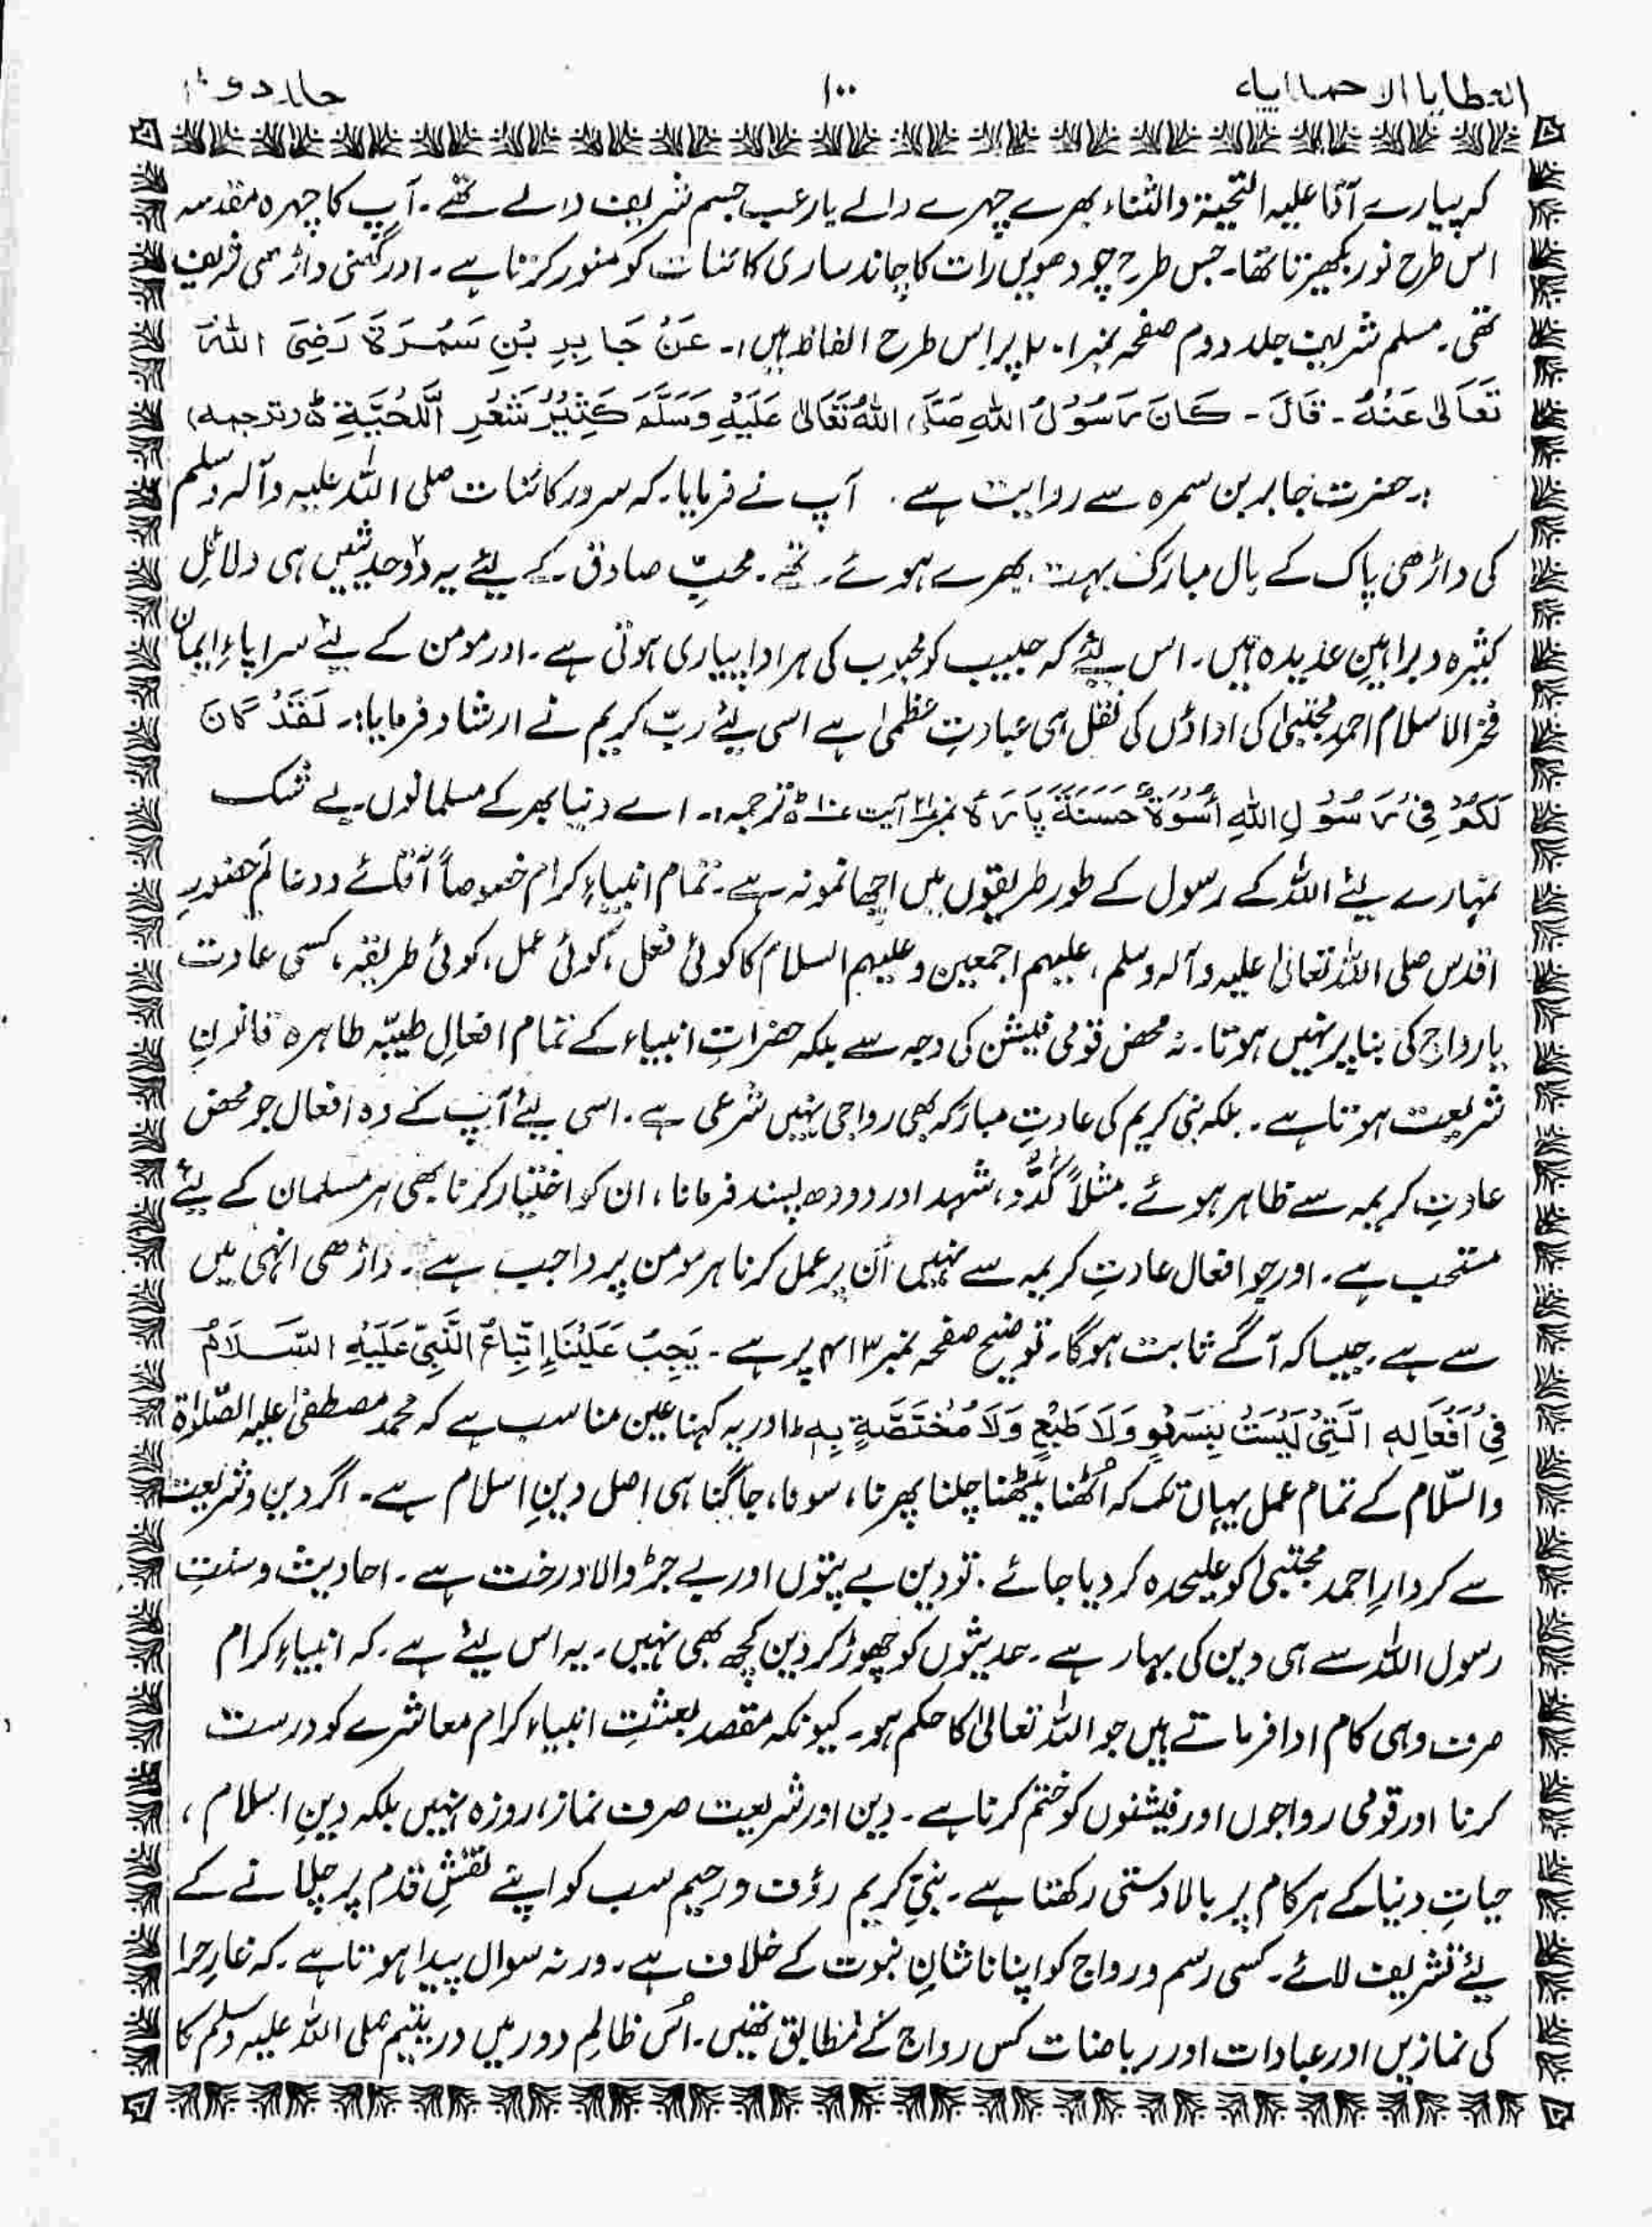 العطایا الاحمدیہ ۱۰۰ جلد دوم
کہ پیارے آقا علیہ التحیۃ والثناء بھرے چہرے والے بارعب جسم شریف والے تھے۔ آپ کا چہرہ مقدسہ
اس طرح نور بکھیرتا تھا۔ جس طرح چودھویں رات کا چاند ساری کائنات کو منور کرتا ہے۔ اور گھنی داڑھی شریف
تھی۔ مسلم شریف جلد دوم صفحہ نمبر پر اس طرح الفاظ ہیں۔ عَنْ جَابِرِ بْنِ سَمُرَةَ رَضِیَ اللّٰہُ
تَعَالٰی عَنْہُ۔ قَالَ۔ کَانَ رَسُوْلُ اللّٰہِ صَلَّی اللّٰہُ تَعَالٰی عَلَیْہِ وَسَلَّمَ کَثِیْرُ شَعْرِ اللِّحْیَۃِ (ترجمہ)
:۔ حضرت جابر بن سمرہ سے روایت ہے۔ آپ نے فرمایا۔ کہ سرور کائنات صلی اللہ علیہ وآلہ وسلم
کی داڑھی پاک کے بال مبارک بہت بھرے ہوئے تھے۔ محبِّ صادق کے لیئے یہ دو۲ حدیثیں ہی دلائلِ
کثیرہ و براہینِ عدیدہ ہیں۔ اس لیئے کہ حبیب کو محبوب کی ہر ادا پیاری ہوتی ہے۔ اور مومن کے لیئے سراپاءِ ایمان
فخر الاسلام احمدِ مجتبیٰ کی اداؤں کی نقل ہی عبادتِ عظمیٰ ہے اسی لیئے ربِّ کریم نے ارشاد فرمایا:۔ لَقَدْ کَانَ
لَکُمْ فِیْ رَسُوْلِ اللّٰہِ اُسْوَۃٌ حَسَنَۃٌ پارہ نمبر آیت ترجمہ:۔ اے دنیا بھر کے مسلمانوں بے شک
تمہارے لیئے اللہ کے رسول کے طور طریقوں میں اچھا نمونہ ہے۔ تمام انبیاءِ کرام خصوصاً آقائے دو عالم حضورِ
اقدس صلی اللہ تعالیٰ علیہ وآلہ وسلم، علیہم اجمعین و علیہم السلام کا کوئی فعل، کوئی عمل، کوئی طریقہ، کسی عادت
یا رواج کی بنا پر نہیں ہوتا۔ نہ محض قومی فیشن کی وجہ سے بلکہ حضراتِ انبیاء کے تمام افعالِ طیبّہ طاہرہ قانونِ
شریعت ہوتا ہے۔ بلکہ نبی کریم کی عادتِ مبارکہ بھی رواجی نہیں شرعی ہے۔ اسی لیئے آپ کے وہ افعال جو محض
عادتِ کریمہ سے ظاہر ہوئے۔ مثلاً کدُّو، شہد اور دودھ پسند فرمانا، ان کو اختیار کرنا بھی ہر مسلمان کے لیئے
مستحب ہے۔ اور جو افعال عادتِ کریمہ سے نہیں اُن پر عمل کرنا ہر مومن پر واجب ہے۔ داڑھی انہی میں
سے ہے۔ جیسا کہ آگے ثابت ہوگا۔ توضیح صفحہ نمبر پر ہے۔ یَجِبُ عَلَیْنَا اِتِّبَاعُ النَّبِیِّ عَلَیْہِ السَّلَامُ
فِیْ اَفْعَالِہٖ الَّتِیْ لَیْسَتْ بِسَہْوٍ وَلَا طَبْعٍ وَلَا مُخْتَصَّۃٍ بِہٖ اور یہ کہنا عین مناسب ہے کہ محمد مصطفیٰ علیہ الصّلوٰۃ
والسّلام کے تمام عمل یہاں تک کہ اُٹھنا بیٹھنا چلنا پھرنا، سونا، جاگنا ہی اصل دینِ اسلام ہے۔ اگر دین و شریعت
سے کردارِ احمد مجتبیٰ کو علیحدہ کر دیا جائے۔ تو دین بے پتوں اور بے جڑ والا درخت ہے۔ احادیث و سنتِ
رسول اللہ سے ہی دین کی بہار ہے۔ حدیثوں کو چھوڑ کر دین کچھ بھی نہیں۔ یہ اس لیئے ہے۔ کہ انبیاءِ کرام
صرف وہی کام ادا فرماتے ہیں جو اللہ تعالیٰ کا حکم ہو۔ کیونکہ مقصد بعثتِ انبیاء کرام معاشرے کو درست
کرنا اور قومی رواجوں اور فیشنوں کو ختم کرنا ہے۔ دین اور شریعت صرف نماز، روزہ نہیں بلکہ دینِ اسلام،
حیاتِ دنیا کے ہر کام پر بالادستی رکھتا ہے۔ نبیِّ کریم رؤف و رحیم سب کو اپنے نقشِ قدم پر چلانے کے
لیئے تشریف لائے۔ کسی رسم و رواج کو اپنانا شانِ نبوت کے خلاف ہے۔ ورنہ سوال پیدا ہوتا ہے۔ کہ غارِ حرا
کی نمازیں اور عبادات اور ریاضات کس رواج کے مطابق تھیں۔ اُس ظالم دور میں دریتیم صلی اللہ علیہ وسلم کا